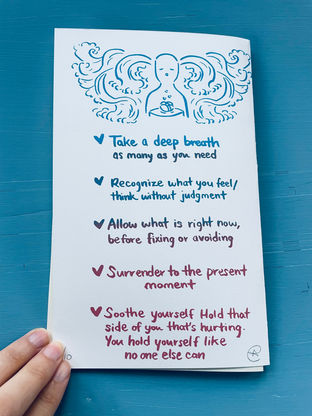 Take a deep breath
as many as you need
Recognize what you feel/
think without judgment
Allow what is right now,
before fixing or avoiding
Surrender to the present
moment
Soothe yourself Hold that
side of you that's hurting.
You hold yourself like
no one else can